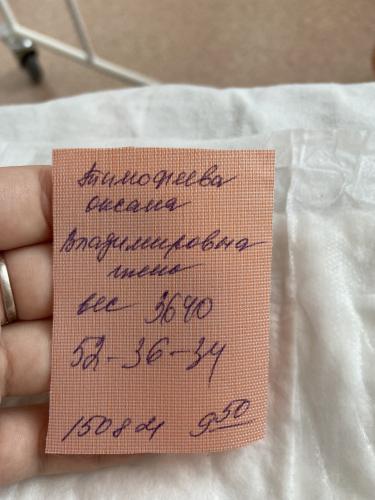 Тимофеева
оксана
Владимировна
вес 3640
52-36-34
150821 9 50